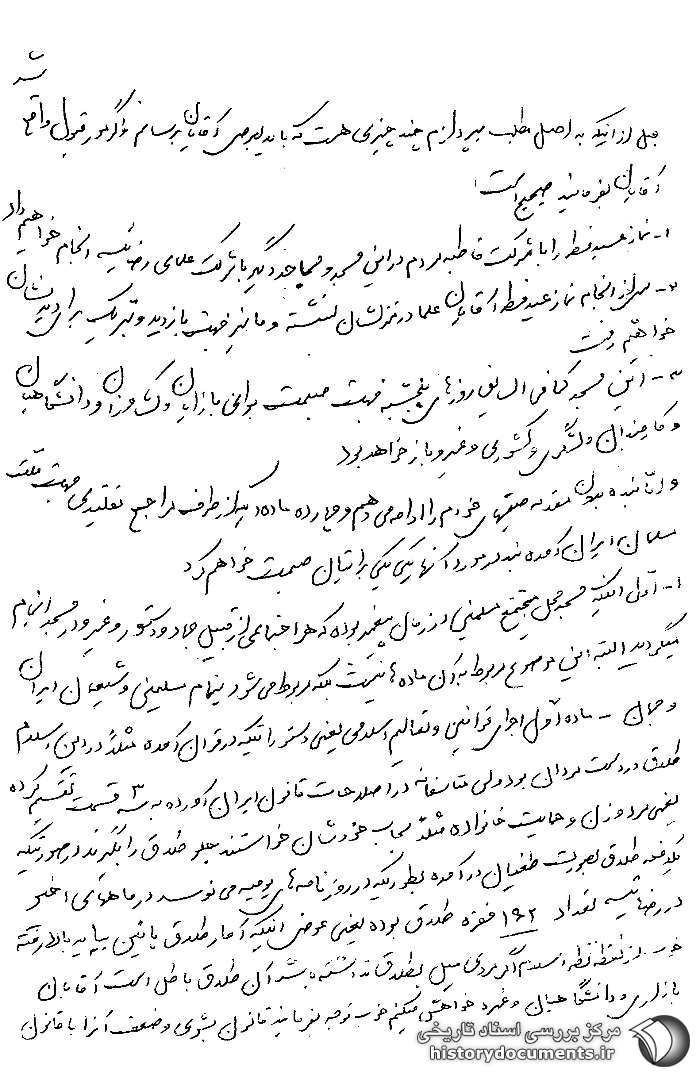 قبل از اینکه به اصل مطلب بپردازم چند چیزی هست که باید بعرض آقایان برسانم و اگر مورد قبول واقع
شد
آقایان بفرمایند صحیح است
۱- نماز عید فطر را با شرکت قاطبه مردم در این مسجد و مساجد دیگر با شرکت علمای رضائیه انجام خواهیم داد
۲- پس از انجام نماز عید فطر آقایان علما در منزلشان نشسته و ما نیز جهت بازدید و تبریک برای دیدنشان
خواهیم رفت
۳- این مسجد کما فی السابق روزهای پنجشنبه جهت صحبت برای بازاریان و کشاورزان و دانشگاهیان
و کارمندان لشگری و کشوری و غیره باز خواهد بود
و اما بنده بعنوان مقدمه صحبتهای خودم را ادامه می دهم و چهارده ماده دیگر از طرف مراجع تقلیدی جهت ملت
مسلمان ایران آمده بنده در مورد آنها یکی یکی برایتان صحبت خواهم کرد
۱- اول اینکه مسجد محل مجتمع مسلمین در زمان پیغمبر بوده که هر اجتماعی از قبیل جهاد و دستور و غیره در مسجد انجام
میگردید البته این موضوع مربوط به آن ماده ها نیست بلکه مربوط می شود به تمام مسلمین و شیعیان ایران
و جهان – ماده اول اجرای قوانین و تعالیم اسلامی یعنی دستوراتیکه در قرآن آمده مثلاً در دین اسلام
طلاق در دست مردان بود ولی متاسفانه در اصلاحات قانون ایران آورده به سه ۳ قسمت تقسیم کرده
یعنی مرد و زن و حمایت خانواده مثلاً بحساب خودشان خواستند جلو طلاق را بگیرند در صورتیکه
یکدفعه طلاق بصورت طغیان در آمده بطوریکه در روزنامه های یومیه می نویسد در ماههای اخیر
در رضائیه تعداد ۱۹۲ فقره طلاق بوده یعنی عوض اینکه آمار طلاق پائین بیاید بالا رفته
خوب از نقطه نظر اسلام اگر مردی میل بطلاق نداشته باشد آن طلاق باطل است آقایان
بازاری و دانشگاهیان و غیره خواهش میکنم خوب توجه بفرمایند قانون بشری وضعیت آنرا با قانون
مرکز بررسی اسناد تاریخی
historydocuments.ir